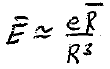 Ē ≈ eR̄/R³